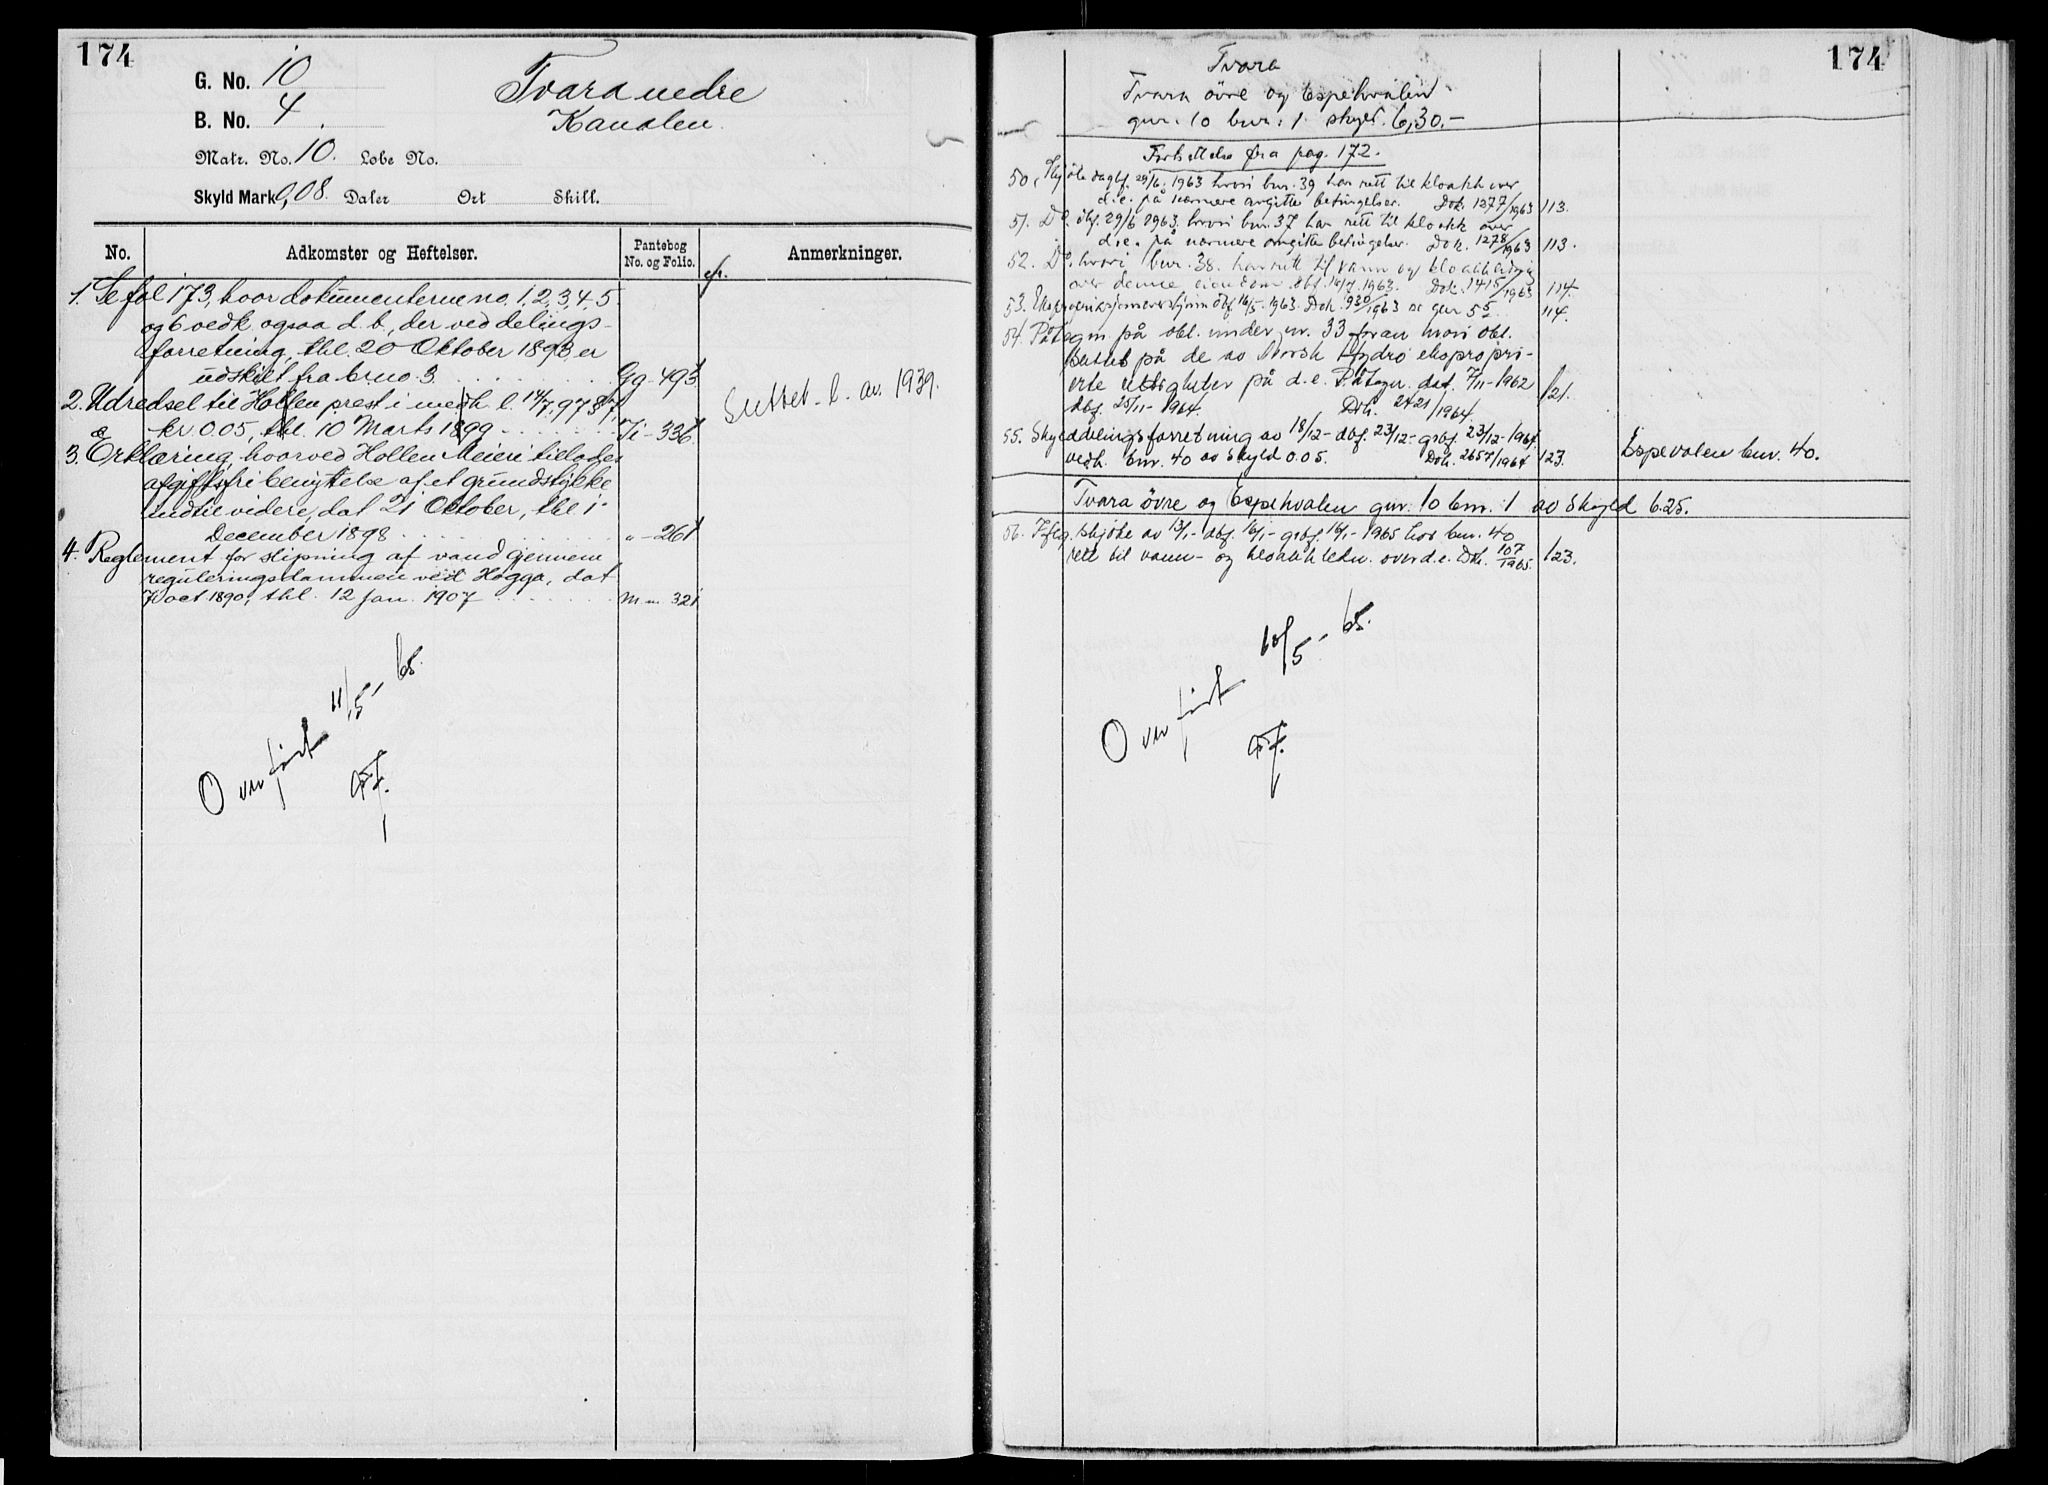 174
G. No. 10
B. No. 4
Matr. No. 10. Løbe No.
Skyld Mark 0,08. Daler Ort Skill.
Tvara nedre
Kanalen
No. Adkomster og Heftelser. Pantebog No. og Folio. Anmerkninger.
cfr.
1. Se fol 173, hvor dokumenterne no. 1, 2, 3, 4, 5
og 6 vedk. ogsaa d. b., der ved delings-
forretning, thl. 20 Oktober 1893 er
udskilt fra brno. 3. Gg-493
2. Udredsel til Hollen prest i medh. l. 14/7, 97
kr 0.05, thl. 10 Marts 1899 Ii-336
Slettet - l. av. 1939.
3. Erklæring, hvorved Hollen Meieri tillades
afgiftsfri benyttelse af et grundstykke
indtil videre, dat 21 Oktober, thl 1
December 1898 " - 261
4. Reglement for slipning af vand gjennem
reguleringsdammen ved Hogga, dat
7 oct. 1890, thl. 12 jan. 1907 321
Overført 11/5 - 65.
174
Tvara
Tvara övre og Espehvalen
gnr. 10 bnr. 1 skyld. 6,30.-
Fortsettelse fra pag. 172.
50. Skjöte dagbf. 29/6. 1963 hvori bnr. 39 har rett til kloakk over
d.e. på nærmere angitte betingelser. Dok. 1277/1963 113.
51. Do. dbf. 29/6 1963. hvori bnr. 37 har rett til kloakk over
d.e. på nærmere angitte betingelser. Dok. 1278/1963 113.
52. Do. hvori bnr. 38. har rett til vann og kloakkledning
over denne eiendom. dbf. 16/7. 1963. Dok. 1415/1963 114.
53. dbf 16/5. 1963. Dok. 930/1963 se gnr 55 114.
54. Påtegn på obl. under nr. 33 foran hvori obl.
slettet på de av Norsk Hydro ekspropri-
erte rettigheter på d.e. Påtegn. dat. 7/11-1962
dbf. 25/11-1964. Dok. 2421/1964 121.
55. Skylddelingsforretning av 18/12- dbf. 23/12- grbf. 23/12-1964
vedk. bnr. 40 av skyld 0.05. Dok. 2657/1964 123. Espevalen bnr. 40.
Tvara övre og Espehvalen gnr. 10 bnr. 1 av skyld 6.25.
56. Iflg. skjöte av 13/1- dbf. 16/1- grbf. 16/1-1965 har bnr. 40
rett til vann- og kloakkledn. over d.e. Dok. 107/1965. 123.
Overført 10/5 - 65.